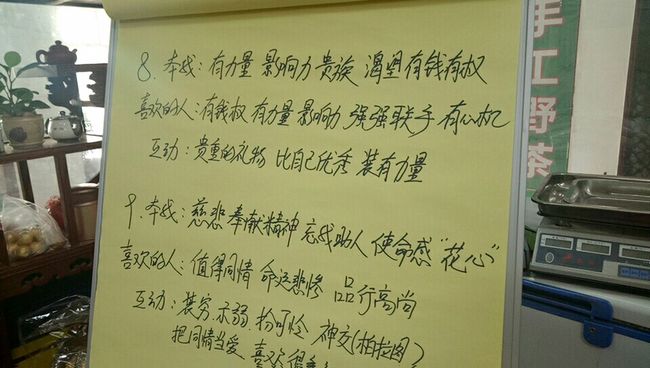 8. 本我：有力量 影响力 贵族 渴望有钱有权
喜欢的人：有钱权 有力量 影响力 强强联手 有心机
互动：贵重的礼物 比自己优秀 装有力量
9. 本我：慈悲奉献精神 忘我助人 使命感“花心”
喜欢的人：值得同情 命运悲惨 品行高尚
互动：装穷.示弱.扮可怜 神交(柏拉图)
把同情当爱 喜欢很
手工野茶